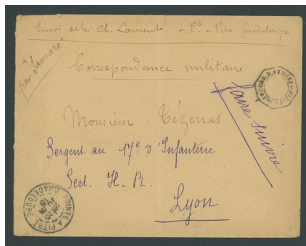 Envoi de la Ct. Lament - Pte - Pitre Guadeloupe
par Samara
Correspondance militaire
Monsieur Tézenas
faire suivre
Sergent au 17e d'Infanterie
Sect. H. R.
Lyon
POINTE A PITRE
GUADELOUPE